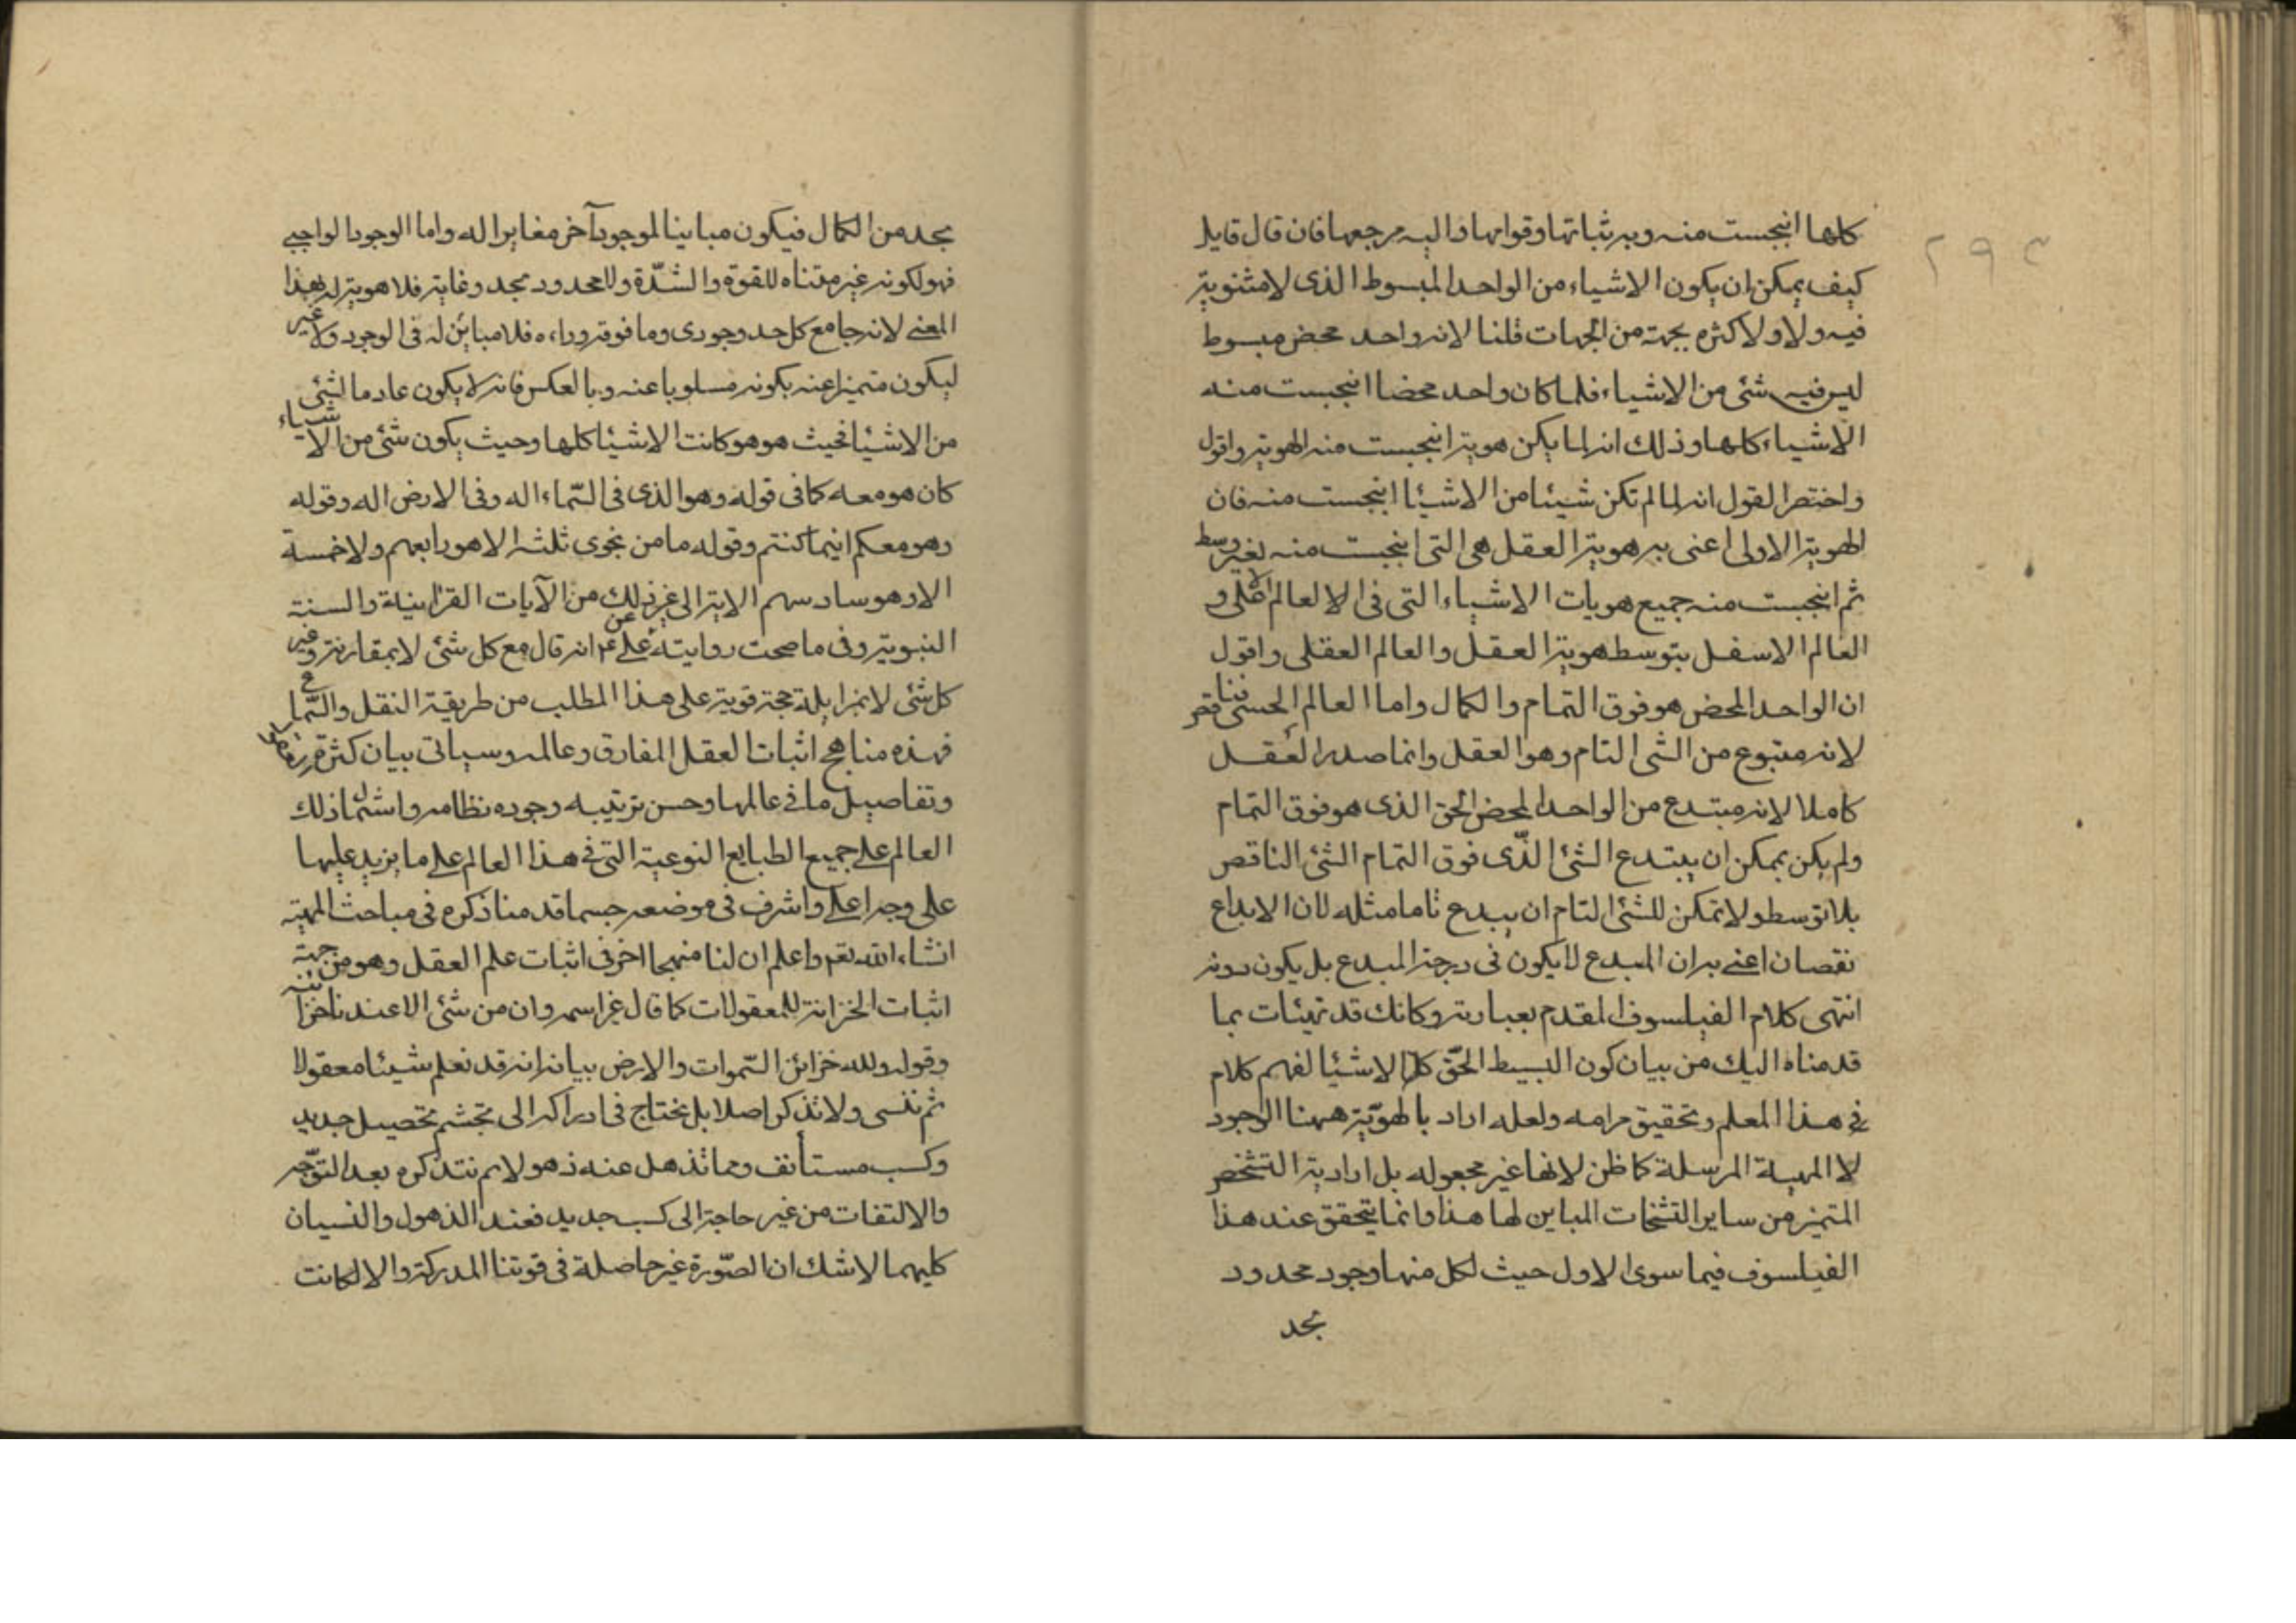 كلها انبجست منه وبه ثباتها وقوامها واليه مرجعها فان قال قايل
كيف يمكن ان يكون الاشياء من الواحد المبسوط الذى لا مثنوية
فيه ولا ولا كثره بجهة من الجهات قلنا لانه واحد محض مبسوط
ليس فيه شئ من الاشياء فلما كان واحد محضا انبجست منه
الاشياء كلها وذلك انه لما يكن هوية انبجست منه الهوية واقول
واختصر القول انه لما لم تكن شيئا من الاشيا انبجست منه فان
الهوية الاولى اعنى به هوية العقل هى التى انبجست منه بغير وسط
ثم انبجست منه جميع هويات الاشياء التى فى الا لعالم الاعلى و
العالم الاسفل بتوسط هوية العقل والعالم العقلى واقول
ان الواحد المحض هو فوق التمام والكمال واما العالم الحسى فناقص
لانه متبوع من الشى التام وهو العقل وانما صدر العقل
كاملا لانه مبتدع من الواحد المحض الحق الذى هو فوق التمام
ولم يكن يمكن ان يبتدع الشئ الذّى فوق التمام الشئ الناقص
بلا توسط ولا تمكن للشئ التام ان يبدع تاما مثله لان الابداع
نقصان اعنى به ان المبدع لا يكون فى درجة المبدع بل يكون دونه
انتهى كلام الفيلسوف المقدم بعبارته وكانك قد تهيئات بما
قدمناه اليك من بيان كون البسيط الحّق كل الاشيا لفهم كلام
فى هذا المعلم وتحقيق مرامه ولعله اراد بالهويّة ههنا الوجود
لا المهية المرسلة كما ظن لانها غير مجعوله بل اراد به التشخص
المتميز من ساير التشخات المباين لها هذا وانما يتحقق عند هذا
الفيلسوف فيما سوى الاول حيث لكل منها وجود محدود
بحد
٢٩٣
بحد من الكمال فيكون مباينا لموجود آخر مغايرا له واما الوجود الواجبى
فهو لكونه غير متناه للقوة والشّدة ولا محدود بحد وغاية فلا هوية له بهذا
المعنى لانه جامع كل حد وجودى وما فوقه ووراءه فلا مباين له فى الوجود ولا غير
ليكون متميزا عنه بكونه مسلوبا عنه وبالعكس فانه لا يكون عادما لشئ
من الاشيا فحيث هو هو كانت الاشيا كلها وحيث يكون شئ من الاشياء
كان هو معه كما فى قوله وهو الذى فى السّماء اله وفى الارض اله وقوله
وهو معكم اينما كنتم وقوله ما من نجوى ثلثه الا هو رابعهم ولا خمسة
الا وهو سادسهم الاية الى غير ذلك من الآيات القرانية والسنة
النبوية وفى ما صحت روايته عن على ع انه قال مع كل شئ لا بمقارنة وغير
كل شئ لا بمزايلة حجة قوية على هذا المطلب من طريقة النقل والسّماع
فهذه مناهج اثبات العقل المفارق وعالمه وسياتى بيان كثرة
وتفاصيل ما فى عالمها وحسن ترتيبه وجوده نظامه واشتمال ذلك
العالم على جميع الطبايع النوعية التى فى هذا العالم على ما يزيد عليها
على وجه اعلى واشرف فى موضعه حسما قدمنا ذكره فى مباحث المهية
انشاء الله تعم واعلم ان لنا منهجا اخر فى اثبات علم العقل وهو من جهة
اثبات الخزانة للمعقولات كما قال عز اسمه وان من شئ الا عندنا خزآئنه
وقوله ولله خزائن السّموات والارض بيانه انه قد نعلم شيئا معقولا
ثم ننسى ولا نذكر اصلا بل نحتاج فى ادراكه الى تجشم تحصيل جديد
وكسب مستأنف وما نذهل عنه ذهولا ثم نتذكره بعد التوّجه
والالتفات من غير حاجة الى كسب جديد فعند الذهول والنسيان
كليهما لا شك ان الصّورة غير حاصلة فى قوتنا المدركة والا لكانت